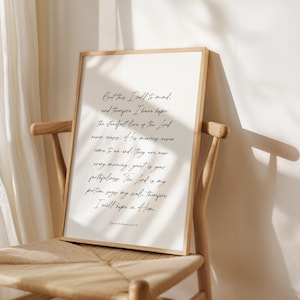 But this I call to mind
and therefore I have hope
the steadfast love of the Lord
never ceases; His mercies never
come to an end; they are new
every morning; great is your
faithfulness. The Lord is my
portion, says my soul, therefore
I will hope in Him.